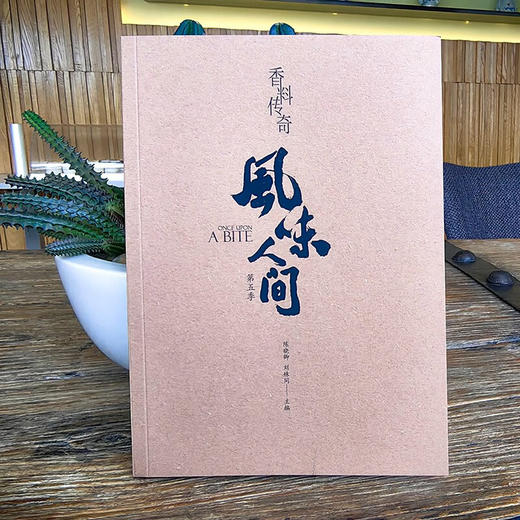 香料传奇
風味人间
ONCE UPON
A BITE
第五季
陈晓卿 刘殊同——主编